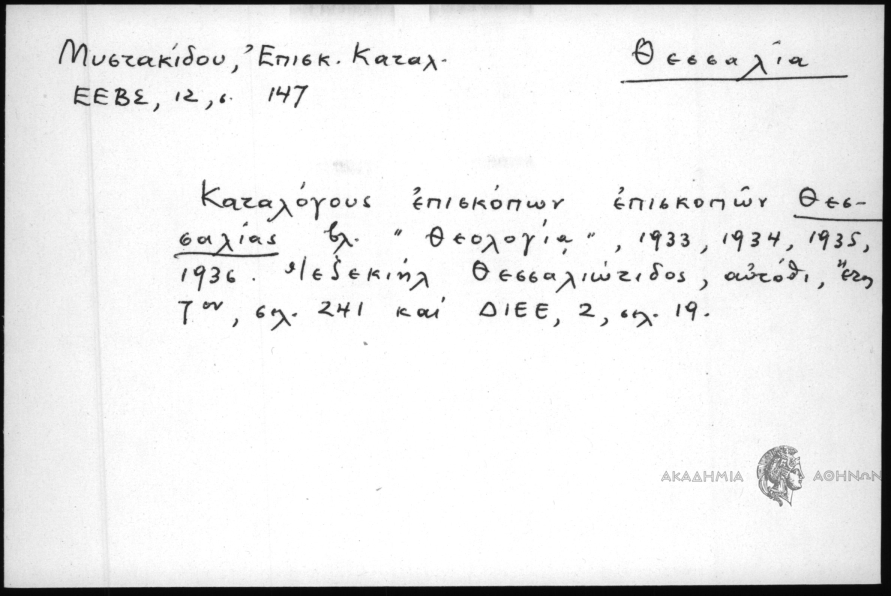 Μυστακίδου, Ἐπισκ. Καταλ.
ΕΕΒΣ, 12, σ. 147
Θεσσαλία
Καταλόγους ἐπισκόπων ἐπισκοπῶν Θεσ-
σαλίας βλ. "Θεολογία", 1933, 1934, 1935,
1936. Ἰεζεκιήλ Θεσσαλιώτιδος, αὐτόθι, ἔτος
7ον, σελ. 241 καί ΔΙΕΕ, 2, σελ. 19.
ΑΚΑΔΗΜΙΑ ΑΘΗΝΩΝ